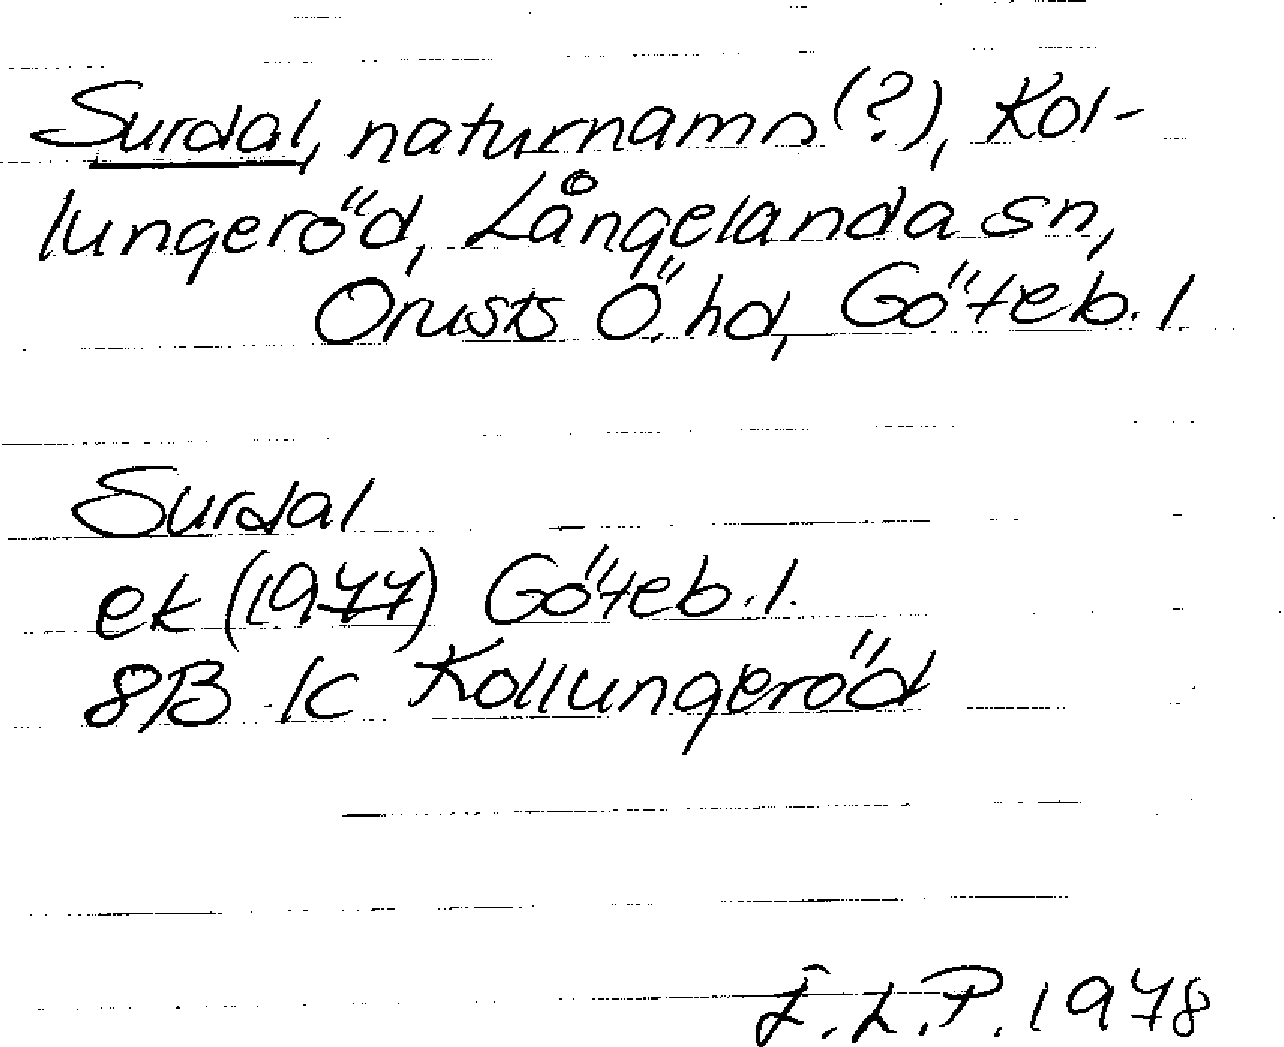 Surdal, naturnamn(?), Kol-
lungeröd, Långelanda sn,
Orusts Ö. hd, Göteb. l.
Surdal
ek (1977) Göteb. l.
8B 1c Kollungeröd
E.L.P. 1978